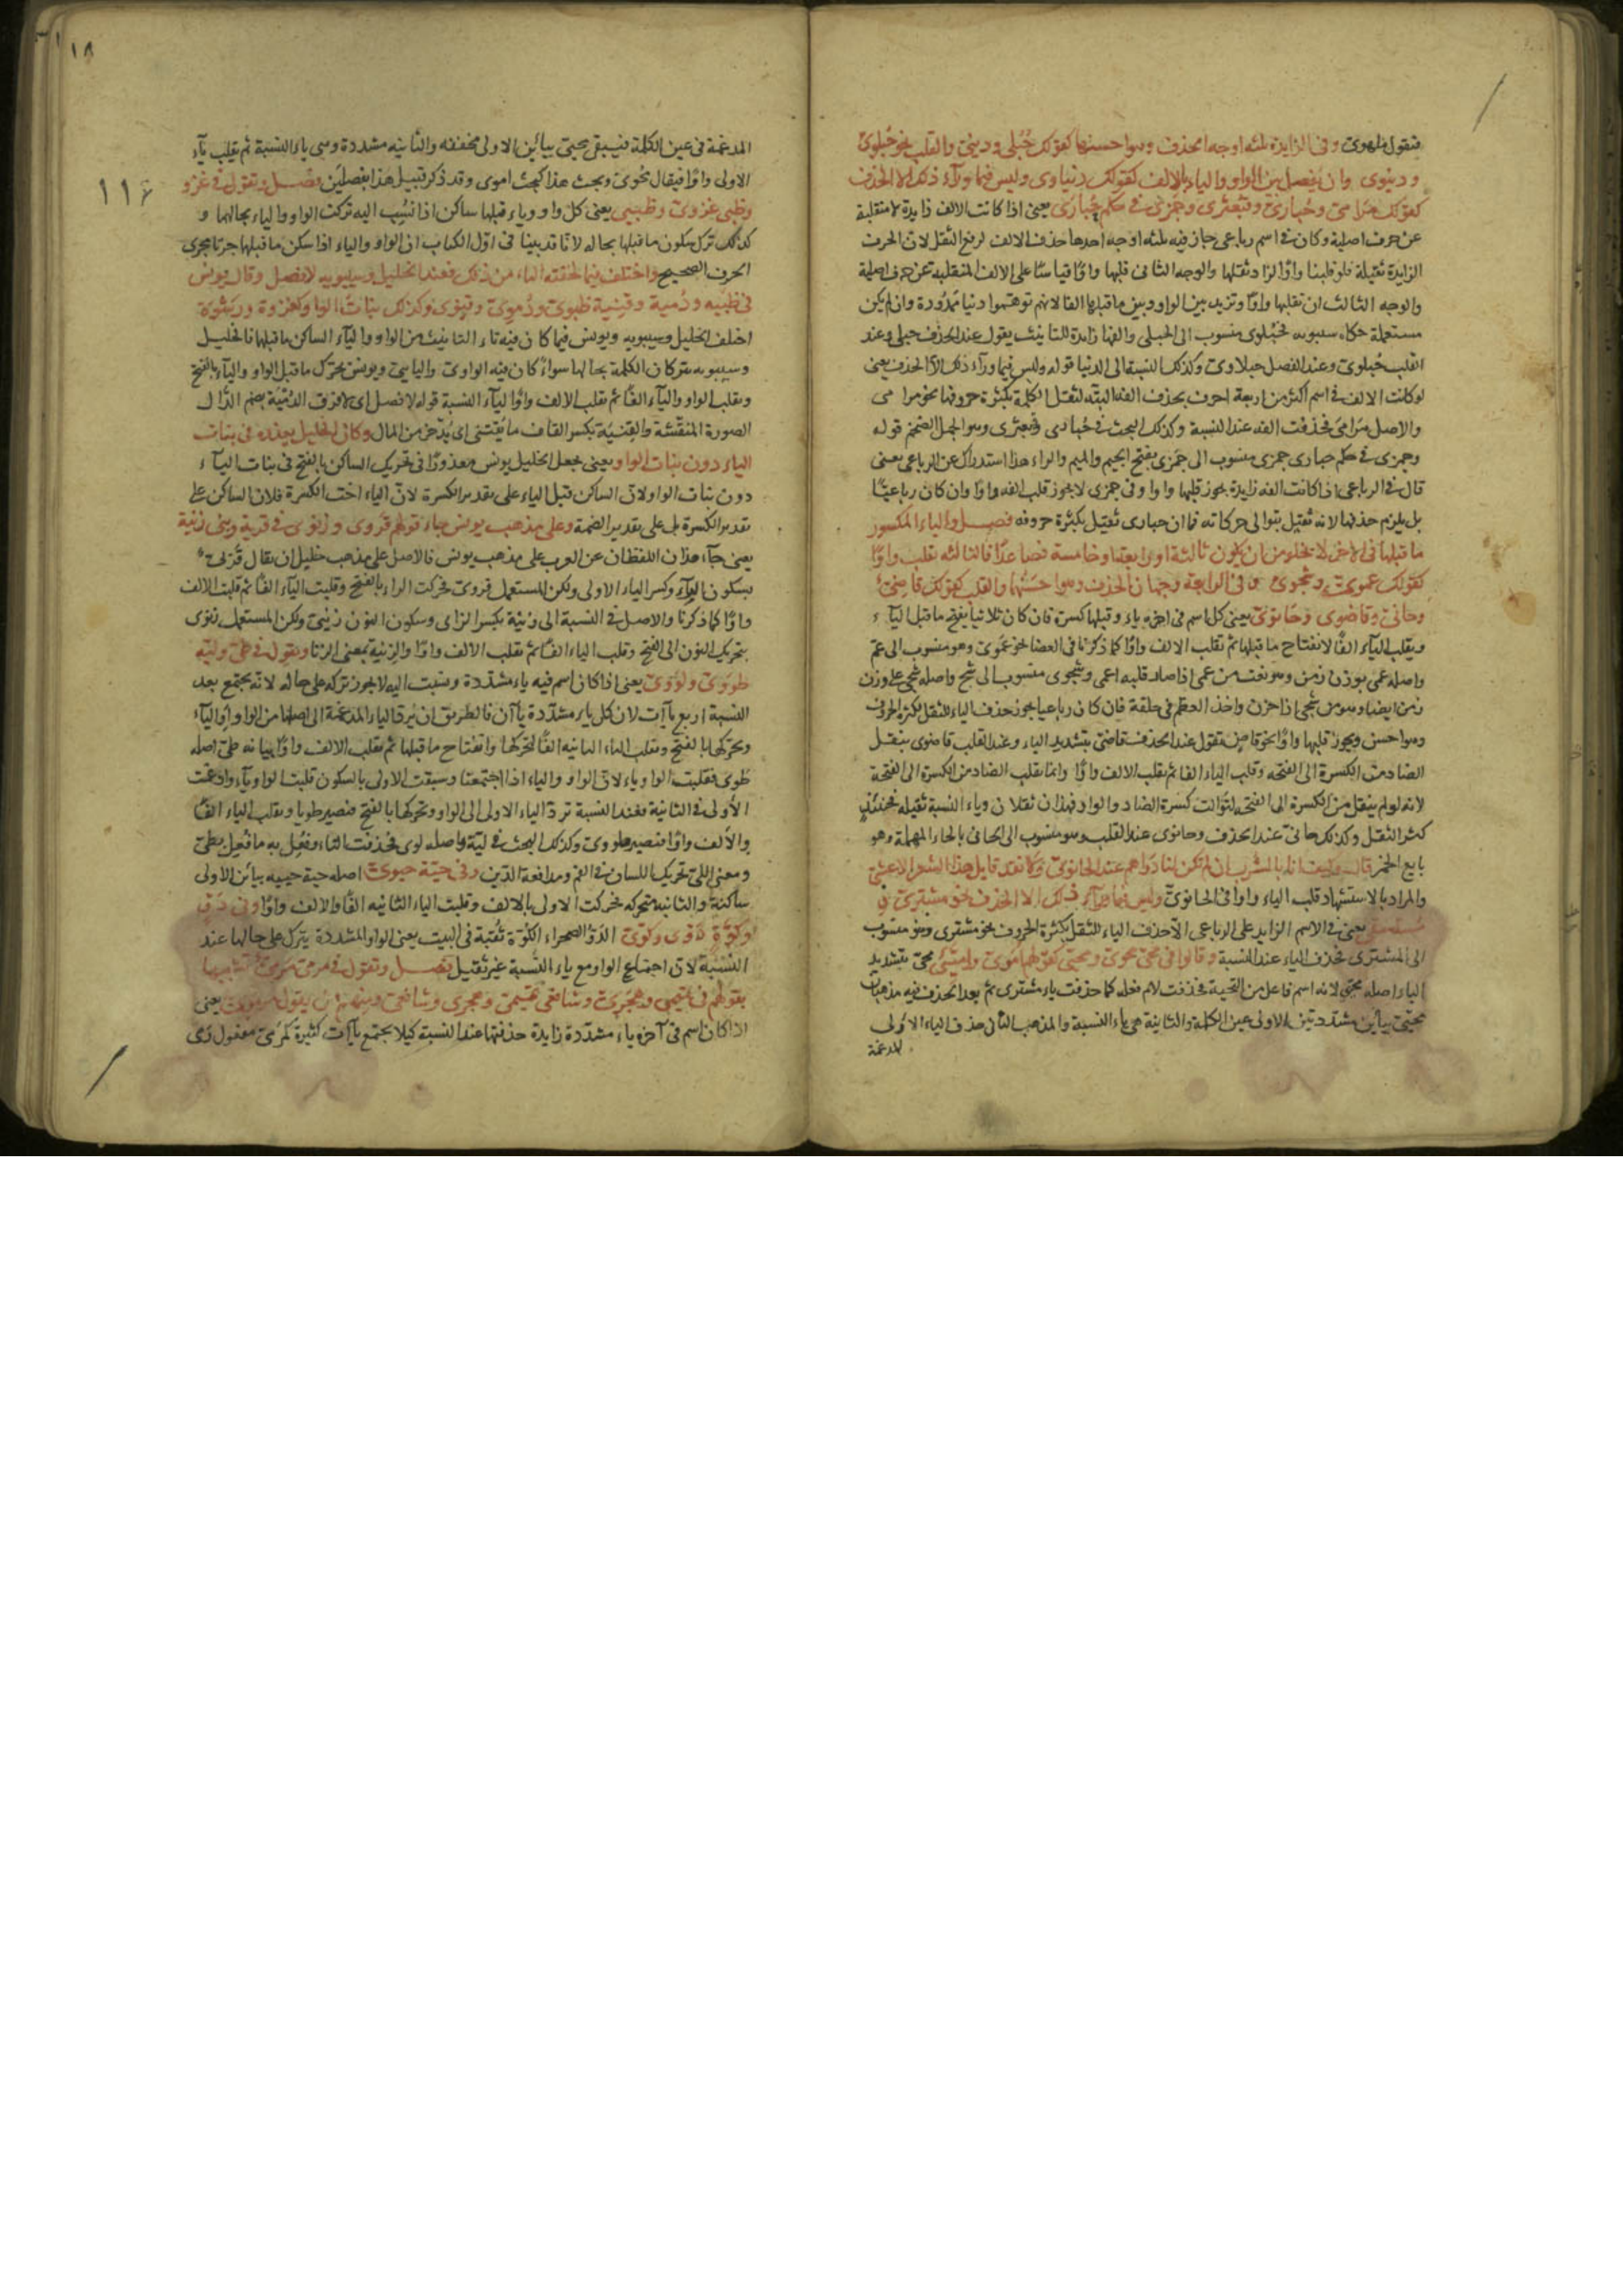 فتقول ملهوى وفى الزايدة ثلثه اوجه الحذف وهو احسنها كقولك حُبلى ودنيىّ والقلب نحو حُبلوىّ
ودنيوى وان يفصل بين الواو والياء بالالف كقولك دنياوى وليس فيما ورآء ذلك الا الحذف
كقولك مرامىّ وحُبارىّ وقبعثرى وجمزى فى حكم حُبارى يعنى اذا كانت الالف زايدة لا منقلبة
عن حرف اصلية وكان فى اسم رباعى جاز فيه ثلثه اوجه احدها حذف الالف لرفع الثقل لان الحرف
الزايدة ثقيلة فلو قلبنا واوًا لزاد ثقلها والوجه الثانى قلبها واوًا قياسًا على الالف المنقلبة عن حرف اصلية
والوجه الثالث ان نقلبها واوًا وتزيد بين الواو وبين ماقبلها الفا لانهم توهّموا دنيا ممدودة وان لم يكن
مستعملة حكاه سيبويه فحُبلوى منسوب الى الحبلى والفها زايدة للتانيث يقول عند الحذف حبلى وعند
القلب حُبلوىّ وعند الفصل حبلاوى وكذلك النسبة الى الدنيا قوله وليس فيما ورآء ذلك الّا الحذف يعنى
لو كانت الالف فى اسم اكثر من اربعة احرف يحذف الفه البتّه لثقل الكلمة بكثرة حروفها نحو مرامى
والاصل مرامىّ فحذفت الفه عند النسبة وكذلك البحث فى حُبارى وقبعثرى وهو الجمل الضخم قوله
وجمزى فى حكم حبارى جمزى منسوب الى جمَزى بفتح الجيم والميم والراء هذا استدراك عن الرباعى يعنى
قال فى الرباعى اذا كانت الفه زايدة يجوز قلبها واوا وفى جمزى لا يجوز قلب الفه واوًا وان كان رباعيًّا
بل يلزم حذفها لانه ثقيل بتوالى حركاته كما ان حبارى ثقيل بكثرة حروفه فصـــل والياء المكسور
ما قبلها فى الآخر لا يخلو من ان يكون ثالثة او رابعة او خامسة فصاعدًا فالثالثه تقلب واوًا
كقولك عموىّ وشجوىّ وفى الرابعة وجهان الحذف وهو احسنها والقلب كقولك قاضىّ
وحانىّ وقاضوى وحانوىّ يعنى كل اسم فى اخره ياء وقبلها كسرة فان كان ثلاثيا يفتح ماقبل اليآء
ويقلب اليآء الفًا لانفتاح ماقبلها ثم تقلب الالف واوًا كما ذكرنا فى العصا نحو عَمَوىّ وهو منسوب الى عمٍ
واصله عمى بوزن زمن وهو نعت من عمى اذا صار قلبه اعمى وشجوى منسوب الى شجٍ واصله شجى على وزن
زمن ايضا وهو من شجى اذا حزن واخذ العظم فى حلقه فان كان رباعيا يجوز حذف الياء للثقل بكثرة الحروف
وهو احسن ويجوز قلبها واوًا نحو قاضٍ تقول عند الحذف قاضىّ بتشديد الياء وعند القلب قاضوى ينقل
الضاد من الكسرة الى الفتحه وقلب الياء الفا ثم تقلب الالف واوًا وانما ينقل الضاد من الكسرة الى الفتحة
لانه لو لم ينقل من الكسرة الى الفتحه لتوالت كسرة الضاد والواو فهذان ثقلان وياء النسبة ثقيله فحينئذٍ
كثر الثقل وكذلك حانىّ عند الحذف وحانوى عند القلب وهو منسوب الى الحانى بالحاء المهملة وهو
بايع الخمر قال وكيف لنا بالشرب ان لم تكن لنا دراهم عند الحانوىّ ولا نقد قايل هذا الشعر الاعشى
والمراد بالاستشهاد قلب الياء واوا فى الحانوىّ وليس فيما ورآء ذلك الا الحذف نحو مشترىّ فى
يعنى فى الاسم الزايد على الرباعى الّا حذف الياء للثقل بكثرة الحروف نحو مشترى وهو منسوب
الى المشترى فحذف الياء عند النسبة وقالوا فى محىّ محوىّ ومحيىّ كقولهم اموىّ واميىّ محىّ بتشديد
الياء اصله محيّى لانه اسم فاعل من التحية فحذفت لام فعله كما حذفت ياء مشترى ثم بعد الحذف فيه مذهبان
محيىّ بيائين مشددتين الاولى عين الكلمة والثانية هى ياء النسبة والمذهب الثانى حذف الياء الاولى
المدغمة
١٨
١١٦
المدغمة فى عين الكلمة فيبقى محيىّ بيائين الاولى مخففه والثانية مشددة وهى ياء النسبة ثم يقلب يآء
الاولى واوًا فيقال محوىّ وبحث هذا كبحث اموى وقد ذكر قبيل هذا بفصلين فصـــل وتقول فى غزو
وظبى غزوىّ وظبيى يعنى كل واو وياء قبلها ساكن اذا نُسِب اليه تركت الواو والياء بحالهما و
كذلك ترك سكون ماقبلها بحاله لانا قد بينا فى اوّل الكتاب ان الواو والياء اذا سكن ماقبلها جرتا مجرى
الحرف الصحيح واختلف فيما لحقته التاء من ذلك فعند الخليل وسيبويه لا فصل وقال يونس
فى ظبيه ودُمية وقِنية ظبوىّ ودُموىّ وقِنوى وكذلك بنات الواو كغزوة ورِشوة
اختلف الخليل وسيبويه ويونس فيما كان فيه تاء التانيث من الواو واليآء الساكن ماقبلها فالخليل
وسيبويه يتركان الكلمة بحالها سواءً كان فيه الواوى واليايى ويونس يحرك ماقبل الواو واليآء بالفتح
ويقلب الواو واليآء الفًا ثم تقلب الالف واوًا ليآء النسبة قوله لا فصل اى لا فرق الدُمْيَة بضم الدّال
الصورة المنقّشة والقِنيَة بكسر القاف ما يُقتنى اى يُدّخر من المال وكان الخليل يعذره فى بنات
الياء دون بنات الواو يعنى جعل الخليل يونس معذورًا فى تحريك الساكن بالفتح فى بنات اليآء
دون بنات الواو لان الساكن قبل الياء على تقدير الكسرة لانّ الياء اخت الكسرة فلان الساكن على
تقدير الكسرة بل على تقدير الضمة وعلى مذهب يونس جاء قولهم قروى وزنوى فى قرية وبنى زنية
يعنى جآء هذان اللفظان عن العرب على مذهب يونس فالاصل على مذهب خليل ان يقال قريىّ
بسكون الرآء وكسر الياء الاولى ولكن المستعمل قروىّ فحركت الراء بالفتح وقلبت اليآء الفا ثم قلبت الالف
واوًا كما ذكرنا والاصل فى النسبة الى زنية بكسر الزاى وسكون النون زنيىّ ولكن المستعمل زنوى
بتحريك النون الى الفتح وقلب الياء الفا ثم تقلب الالف واوًا والزنية بمعنى الزنا وتقول فى طىّ وليّة
طووىّ ولووىّ يعنى اذا كان اسم فيه ياء مشددة ونسبت اليه لا يجوز تركه على حاله لانه يجتمع بعد
النسبة اربع يآءات لان كل ياء مشدّدة يآآن فالطريق ان يُرد الياء المدغمة الى اصلها من الواو او اليآء
ويحركها بالفتح وتقلب الياء الثانيه الفًا لتحركها وانفتاح ماقبلها ثم تقلب الالف واوًا بيانه طىّ اصله
طوى فقلبت الواو ياء لان الواو والياء اذا اجتمعتا وسبقت الاولى بالسكون قلبت الواو يآء وادغمت
الأولى فى الثانية فعند النسبة تردّ الياء الاولى الى الواو وتحركها بالفتح فيصير طويا ويقلب الياء الفًا
والألف واوًا فيصير طووىّ وكذلك البحث فى ليّة واصله لوى فحذفت التاء وفُعِل به ما فُعِل بطىّ
ومعنى اللىّ تحريك اللسان فى الفم ومدافعة الدّين وفى حيّة حيوىّ اصله حية حييه بيائن الاولى
ساكنة والثانية متحركه فحركت الاولى بالالف وقلبت الياء الثانيه الفًا والالف واوًا وفى دَوّ
وكوّة دوّى وكوّىّ الدَوّ الصحراء الكُوّة ثُقبة فى البيت يعنى الواو المشددة يترك على حالها عند
النسبة لان اجتماع الواو مع ياء النّسبة غير ثقيل فصـــل وتقول فى مرمىّ مرمىّ تشبيها
بقولهم فى تميمى وهجرىّ وشافعى تميمىّ وهجرى وشافعىّ ومنهم من يقول مرموىّ يعنى
اذا كان اسم فى آخره ياء مشدّدة زايدة حذفتها عند النسبة كيلا يجتمع يآءات كثيرة كمرمىّ مفعول رمى